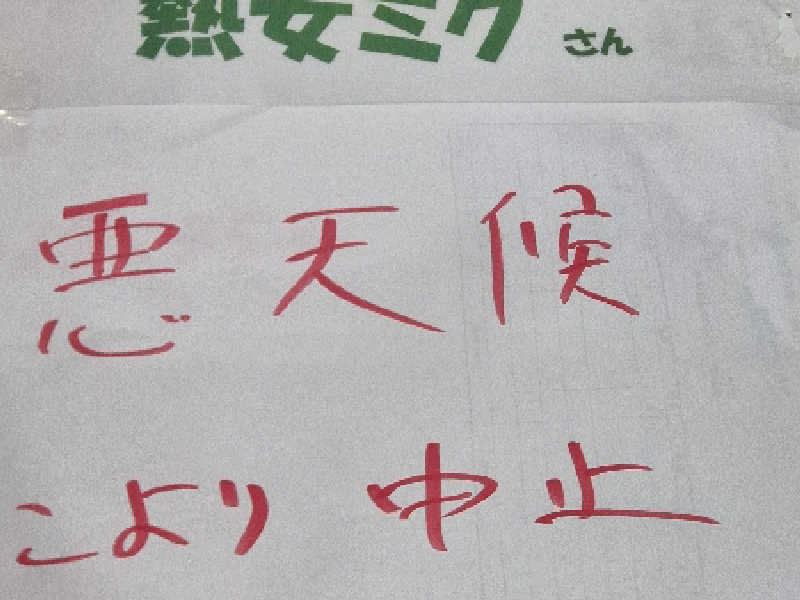 熱女ミク さん
悪天候
こより 中止